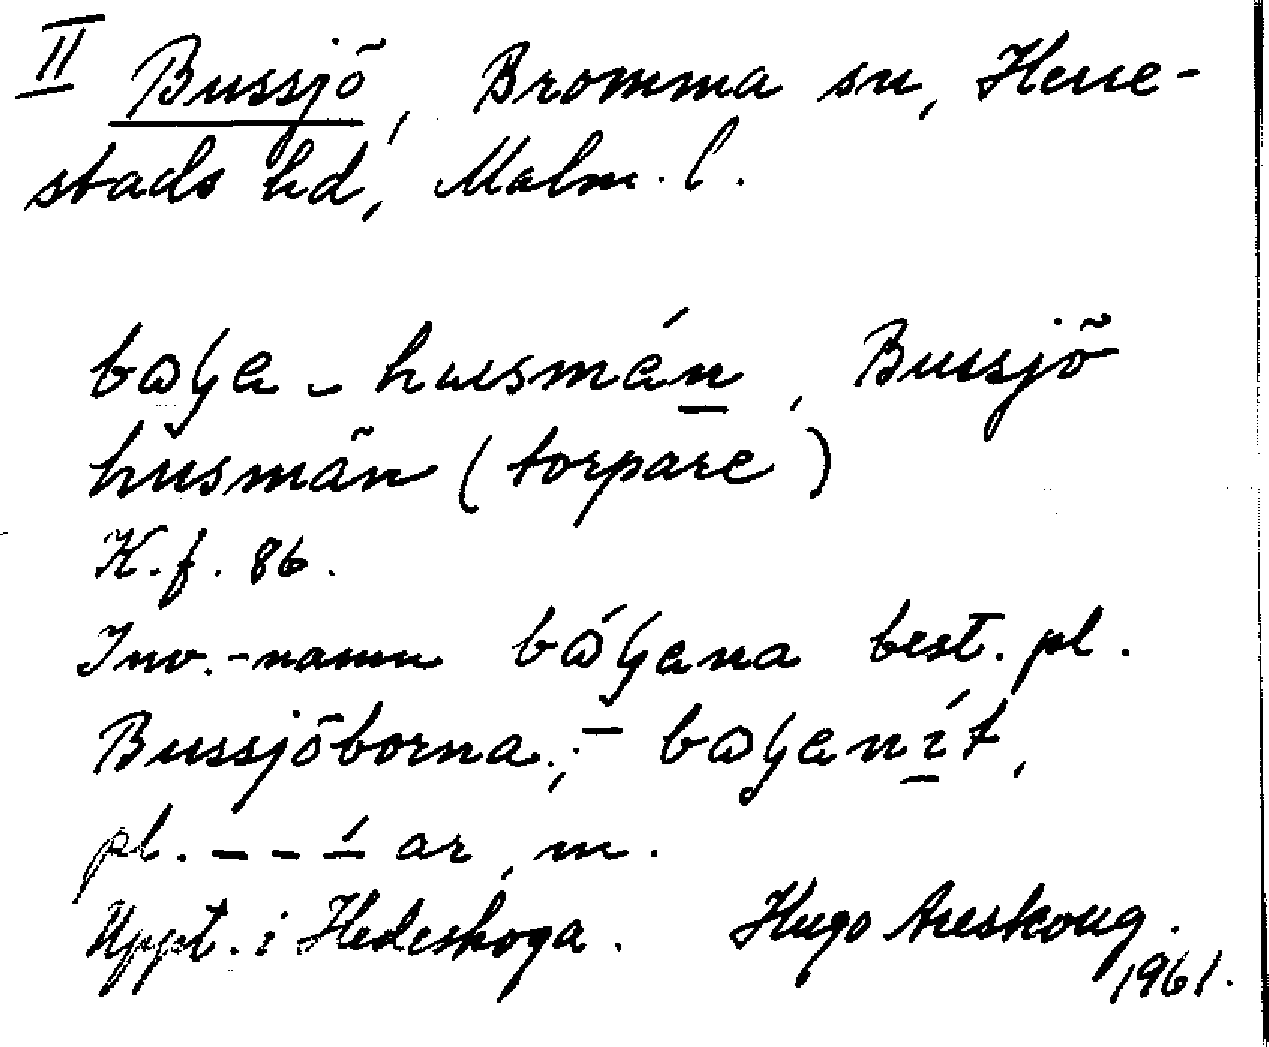 II Bussjö, Bromma sn, Herre-
stads hd, Malm. l.
husmán, Bussjö
husmän (torpare)
K.f. 86.
Inv.-namn best. pl.
Bussjöborna; –
pl. – – – ar, m.
Uppt. i Hedeskoga. Hugo Areskoug.
1961.